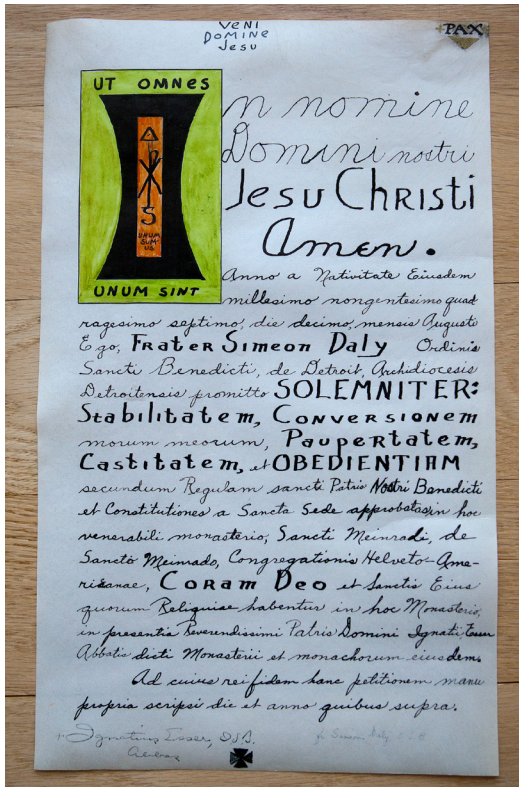 VENI
DOMINE
JESU
PAX
UT OMNES
UNUM SUMUS
UNUM SINT
In nomine
Domini nostri
Jesu Christi
Amen.
Anno a Nativitate Eiusdem
millesimo nongentesimo quad
ragesimo septimo, die decimo, mensis Augusti
Ego, Frater Simeon Daly Ordinis
Sancti Benedicti, de Detroit, Archidiocesis
Detroitensis promitto SOLEMNITER:
Stabilitatem, Conversionem
morum meorum, Paupertatem,
Castitatem, et OBEDIENTIAM
secundum Regulam sancti Patris Nostri Benedicti
et Constitutiones a Sancta Sede approbatas, in hoc
venerabili monasterio, Sancti Meinradi, de
Sancto Meinrado, Congregationis Helveto-Ame-
ricanae, Coram Deo et Sanctis Eius
quorum Reliquiae habentur in hoc Monasterio,
in presentia Reverendissimi Patris Domini Ignatii, Esser
Abbatis dicti Monasterii et monachorum eiusdem.
Ad cuius rei fidem hanc petitionem manu
propria scripsi die et anno quibus supra.
+ Ignatius Esser, O.S.B.
Abbas
fr Simeon Daly O.S.B.